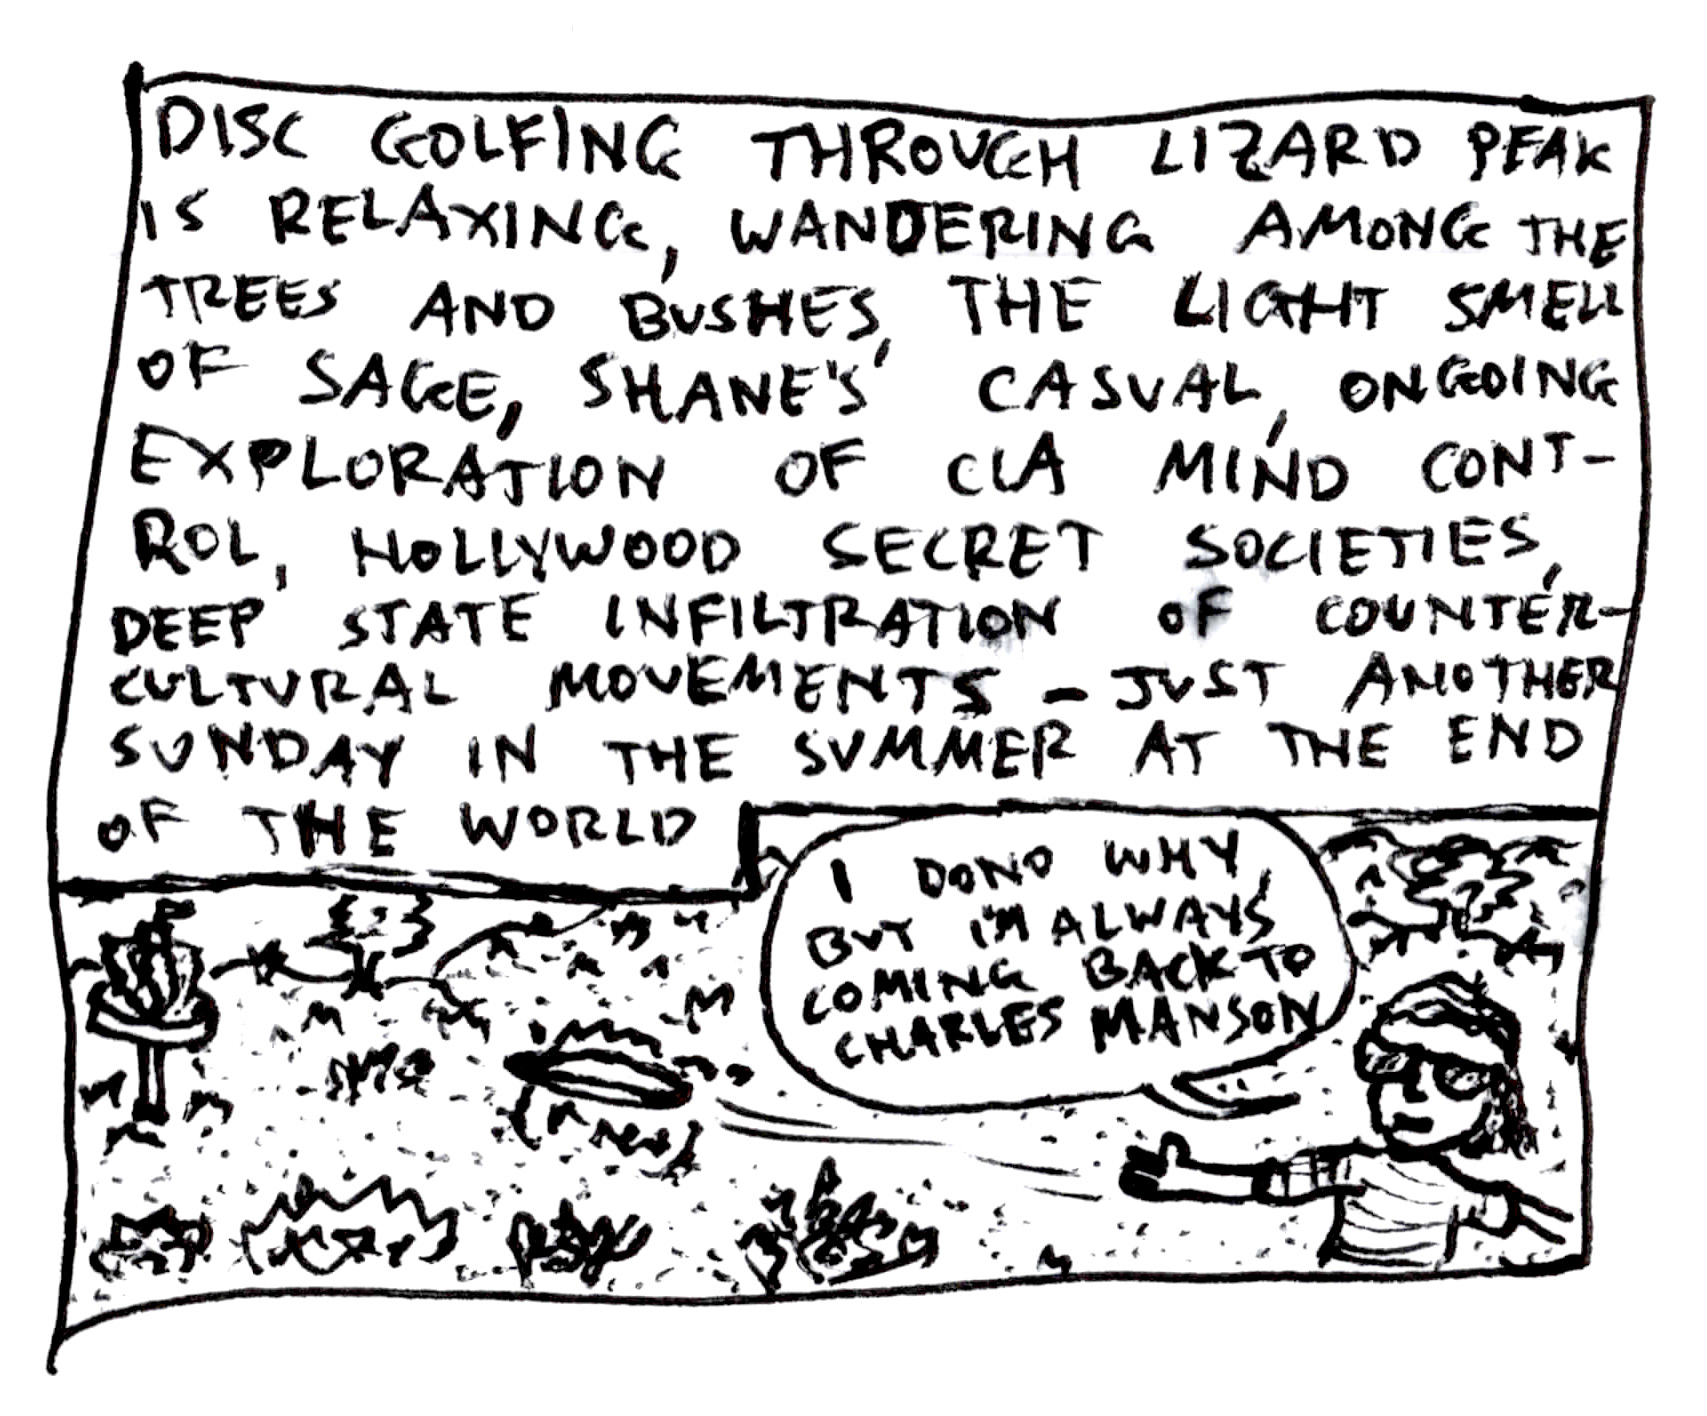 DISC GOLFING THROUGH LIZARD PEAK
IS RELAXING, WANDERING AMONG THE
TREES AND BUSHES, THE LIGHT SMELL
OF SAGE, SHANE'S CASUAL, ONGOING
EXPLORATION OF CIA MIND CONT-
ROL, HOLLYWOOD SECRET SOCIETIES,
DEEP STATE INFILTRATION OF COUNTER-
CULTURAL MOVEMENTS - JUST ANOTHER
SUNDAY IN THE SUMMER AT THE END
OF THE WORLD
I DONO WHY,
BUT I'M ALWAYS
COMING BACK TO
CHARLES MANSON